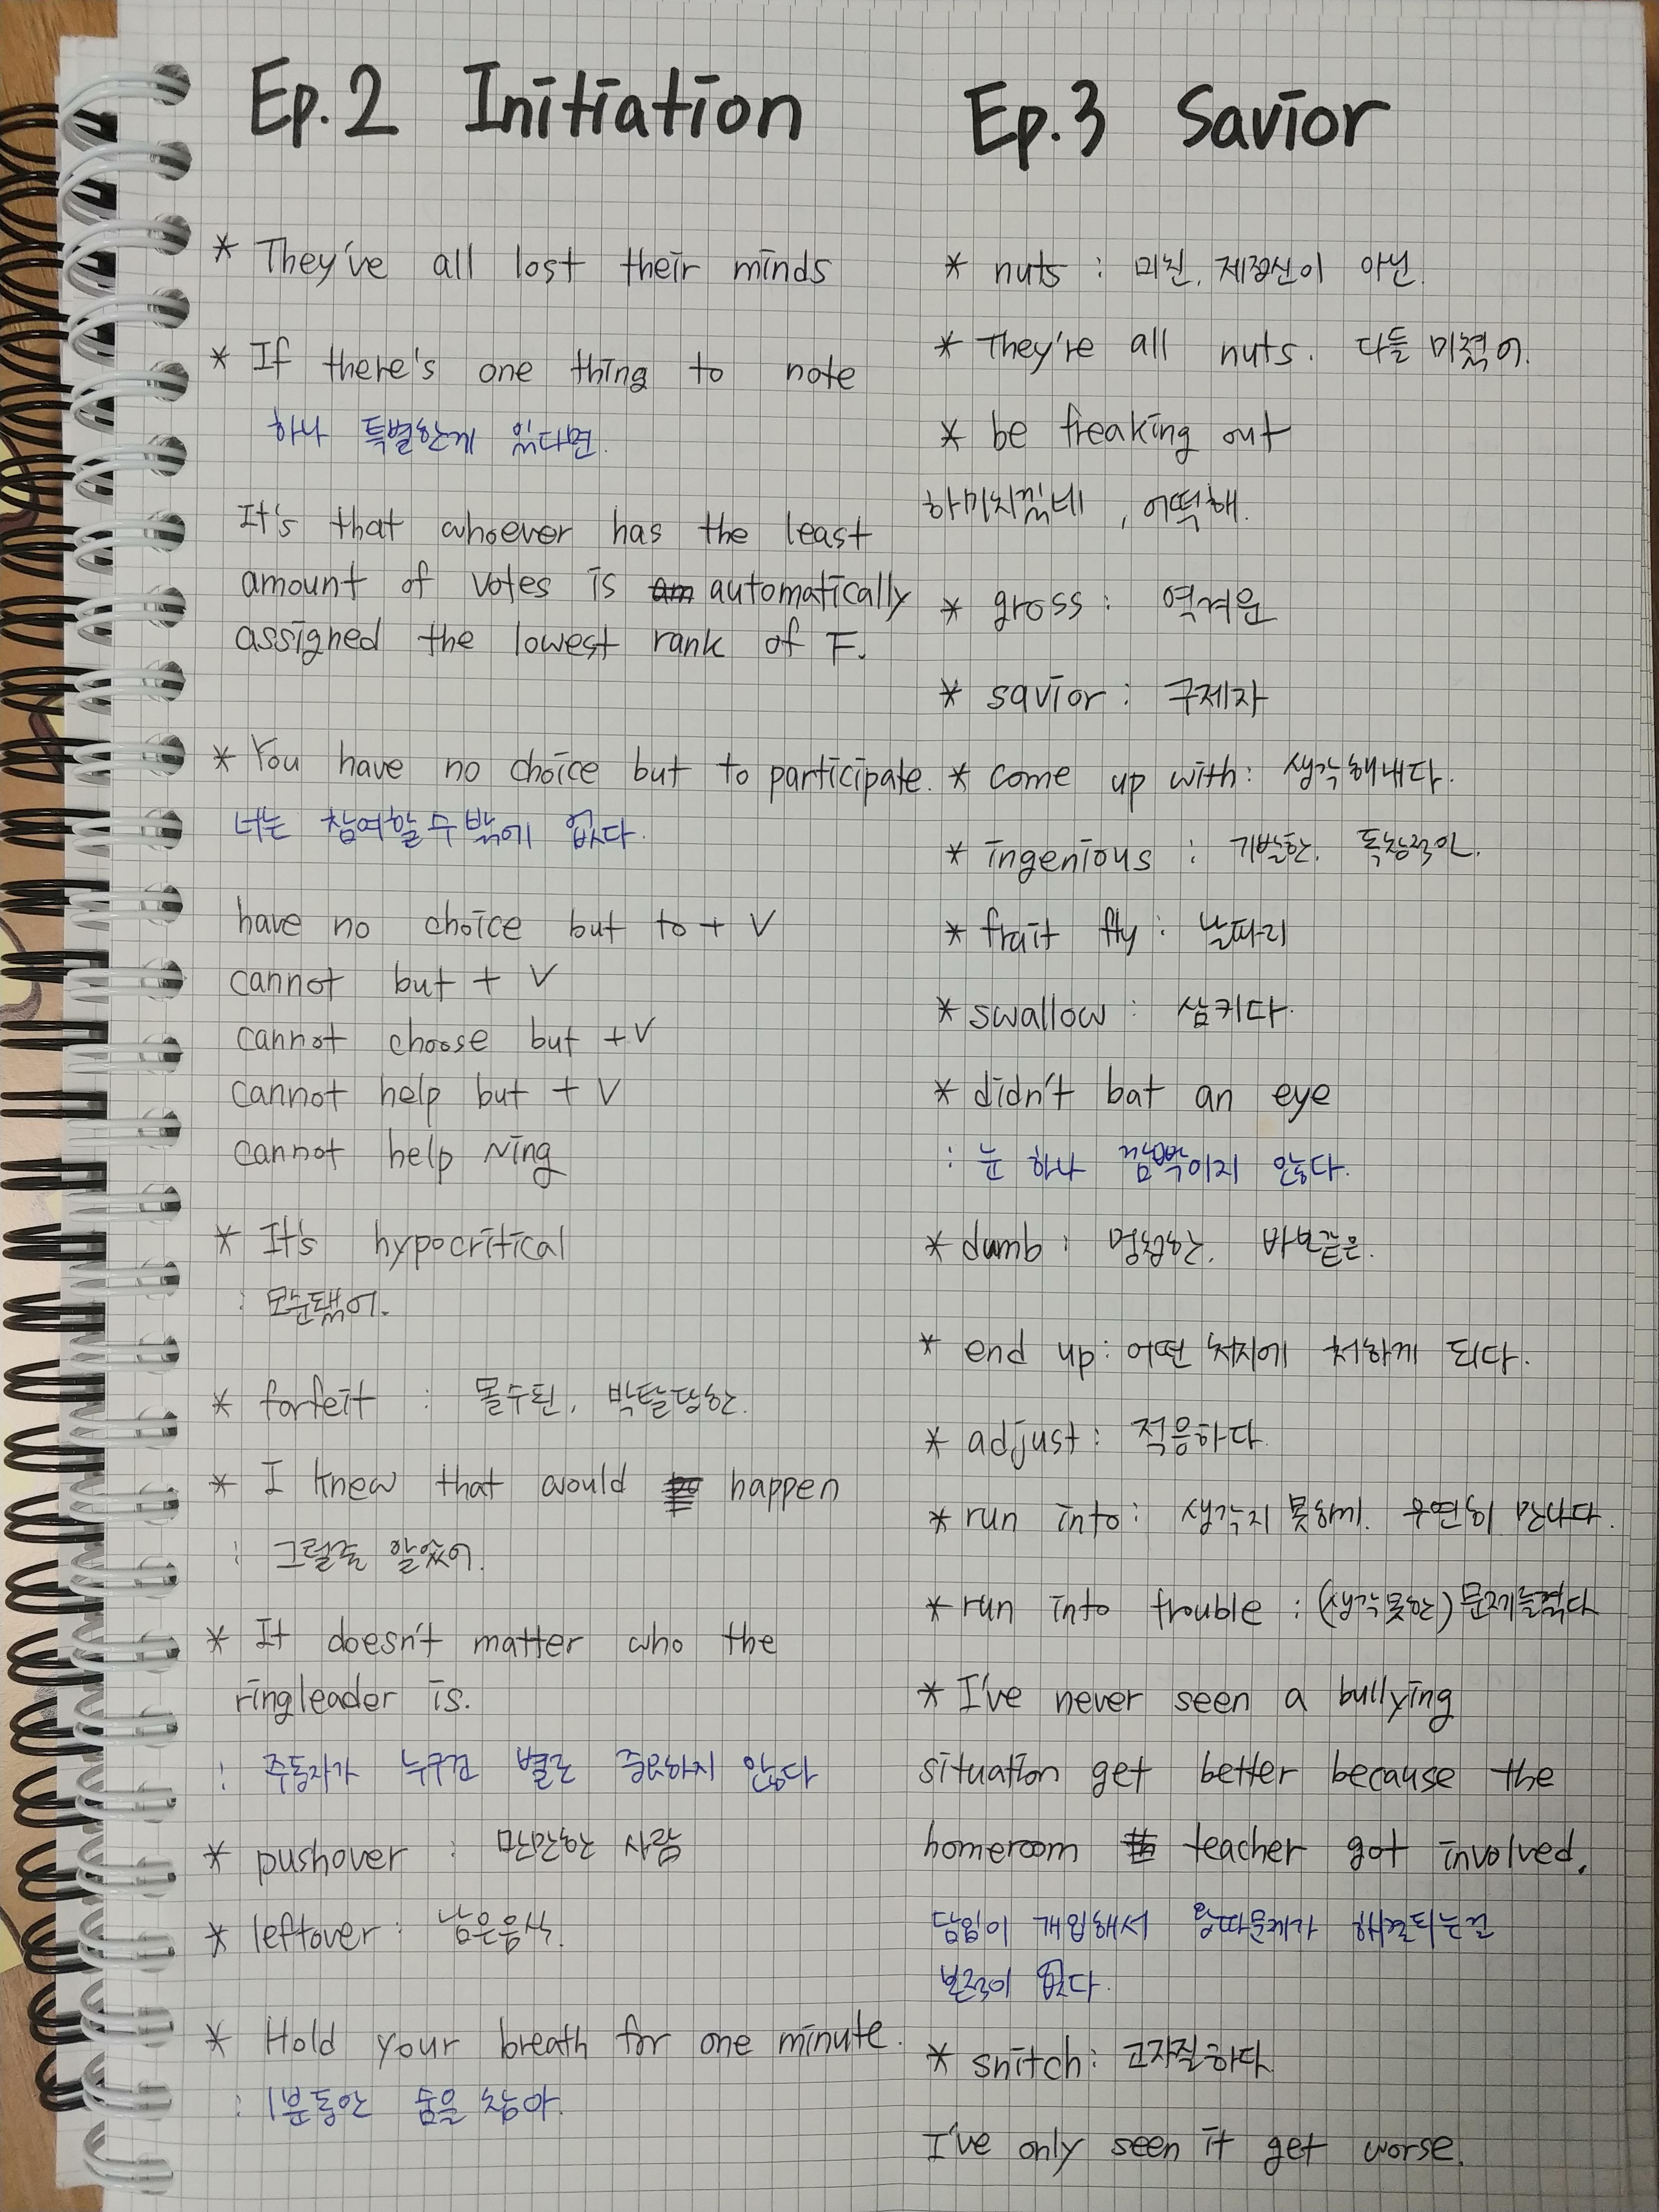 Ep.2 Initiation
* They've all lost their minds
* If there's one thing to note
하나 특별한게 있다면.
It's that whoever has the least
amount of votes is automatically
assigned the lowest rank of F.
* You have no choice but to participate.
너는 참여할 수 밖에 없다.
have no choice but to + V
cannot but + V
cannot choose but + V
cannot help but + V
cannot help Ving
* It's hypocritical
: 모순됐어.
* forfeit : 몰수된, 박탈당한.
* I knew that would happen
: 그럴줄 알았어.
* It doesn't matter who the
ringleader is.
: 주동자가 누구건 별로 중요하지 않다
* pushover : 만만한 사람
* leftover : 남은음식.
* Hold your breath for one minute.
: 1분동안 숨을 참아.
Ep.3 Savior
* nuts : 미친, 제정신이 아닌.
* They're all nuts. 다들 미쳤어.
* be freaking out
, 어떡해.
* gross : 역겨운
* savior : 구제자
* come up with : 생각해내다.
* ingenious : 기발한, 독창적인.
* fruit fly : 날파리
* swallow : 삼키다.
* didn't bat an eye
: 눈 하나 깜빡이지 않다.
* dumb : 멍청한, 바보같은.
* end up : 어떤 처지에 처하게 되다.
* adjust : 적응하다.
* run into : 생각지 못하게. 우연히 만나다.
* run into trouble : (생각못한) 문제를겪다
* I've never seen a bullying
situation get better because the
homeroom teacher got involved.
담임이 개입해서 왕따문제가 해결되는걸
본적이 없다.
* snitch : 고자질하다
I've only seen it get worse.